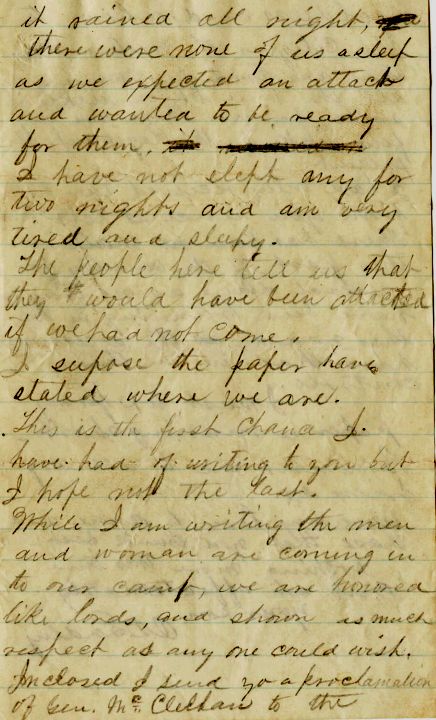 it rained all night,
there were none of us asleep
as we expected an attack
and wanted to be ready
for them. it
I have not slept any for
two nights and am very
tired and sleepy.
The people here tell us that
they would have been attacked
if we had not come.
I supose the paper have
stated where we are.
This is th first Chanc I
have had of writing to you but
I hope not the last.
While I am writing the men
and woman are coming in
to our camp, we are honored
like lords, and shown as much
respect as any one could wish.
Inclosed I send yo a proclamation
of Gen. Mc Clellan to the